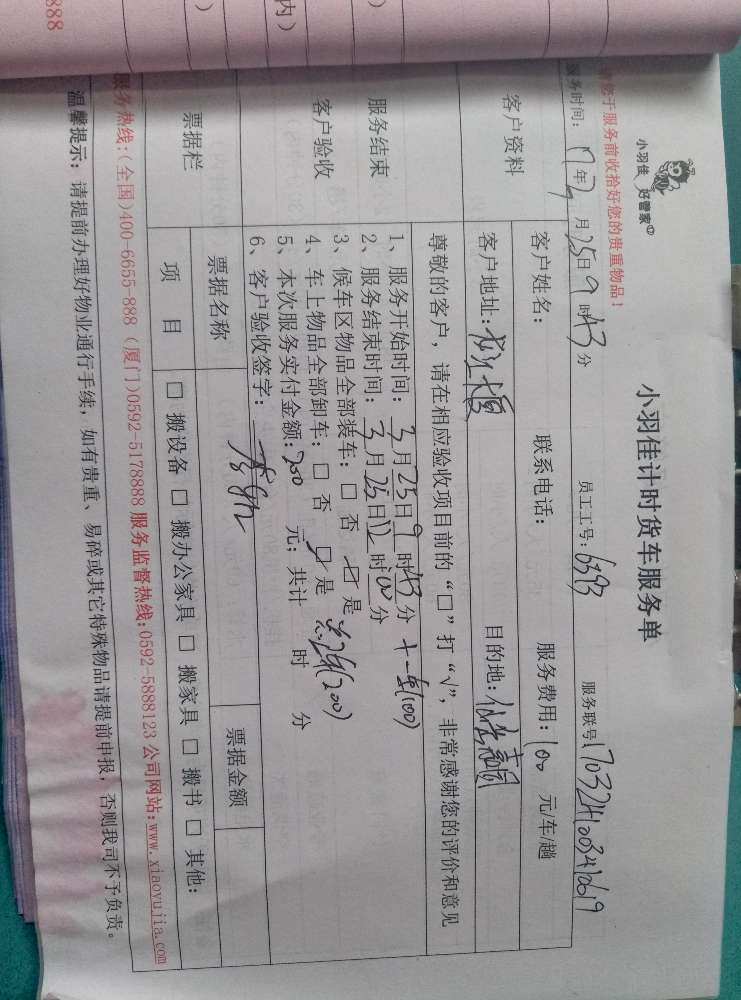 小羽佳 好管家
小羽佳计时货车服务单
请您于服务前收拾好您的贵重物品！
服务时间：17年3月25日9时43分 员工工号：6393 服务联号170324100341069
客户资料
客户姓名： 联系电话： 服务费用：100 元/车/趟
客户地址： 目的地：
服务结束
客户验收
尊敬的客户，请在相应验收项目前的“□”打“√”，非常感谢您的评价和意见
1、服务开始时间：3月25日9时43分 十一车(100)
2、服务结束时间：3月25日12时00分
3、候车区物品全部装车：□ 否 ☑ 是
4、车上物品全部卸车：□ 否 ☑ 是 (200)
5、本次服务实付金额：200 元；共计 时 分
6、客户验收签字：
票据栏
票据名称 票据金额
项 目 □ 搬设备 □ 搬办公家具 □ 搬家具 □ 搬书 □ 其他：
服务热线：(全国)400-6655-888 (厦门)0592-5178888 服务监督热线：0592-5888123 公司网站：www.xiaoyujia.com
温馨提示：请提前办理好物业通行手续，如有贵重、易碎或其它特殊物品请提前申报，否则我司不予负责。
888
)
内)
)